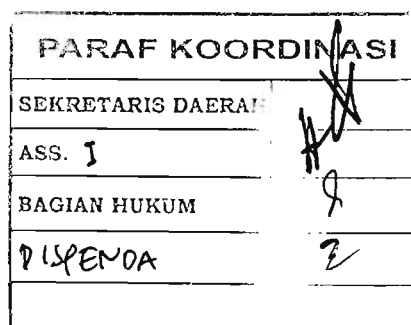 PARAF KOORDINASI
SEKRETARIS DAERAH
ASS. I
BAGIAN HUKUM
DISPENDA